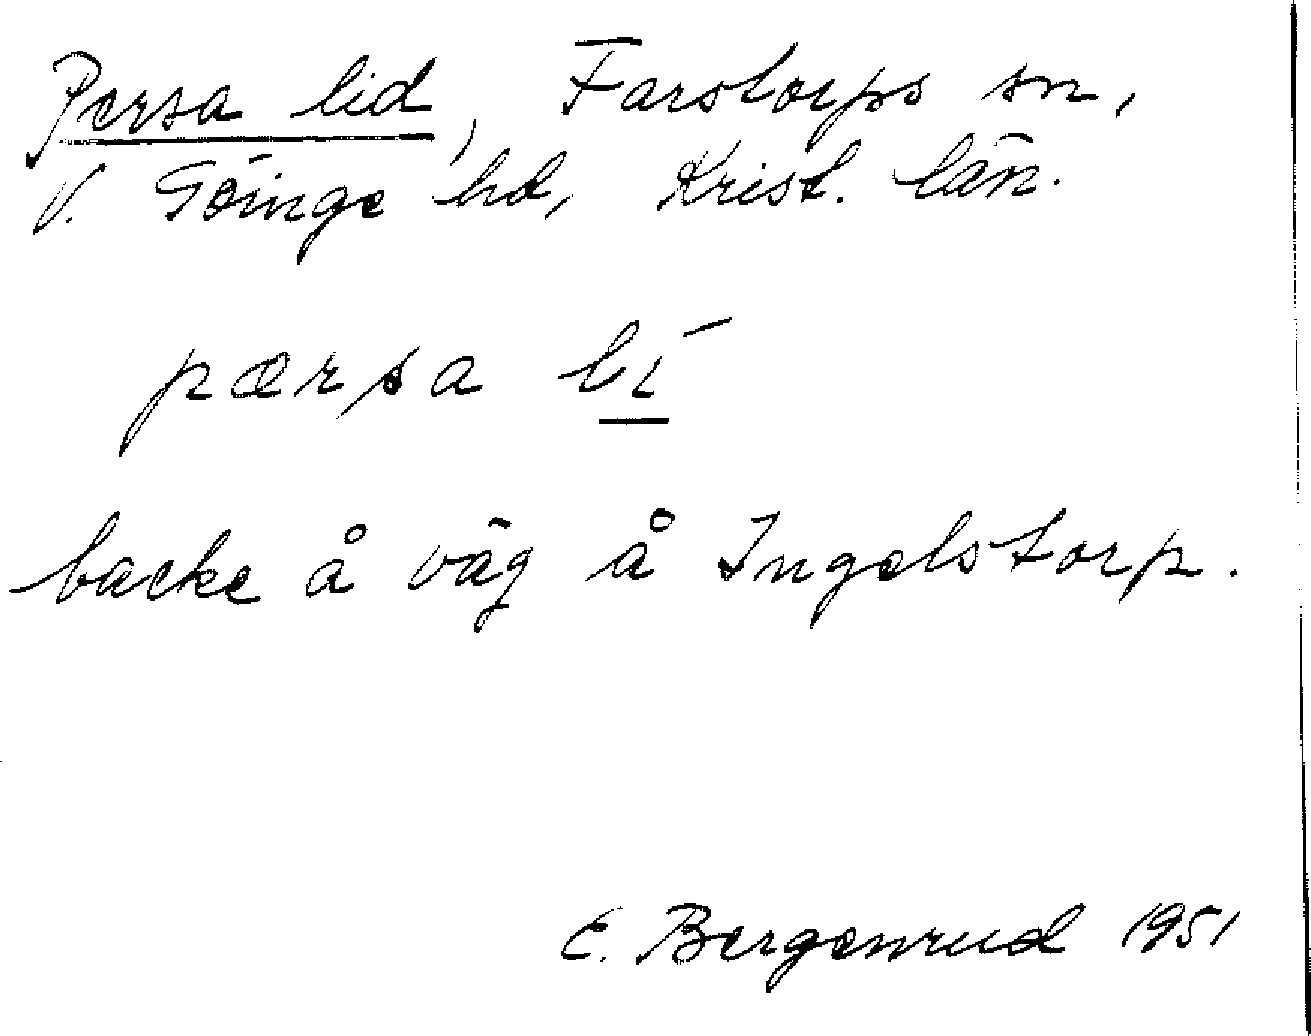 Persa lid, Farstorps sn,
V. Göinge hd, Krist. län.
pærsa lí
backe å väg å Ingelstorp.
E. Bergenrud 1951